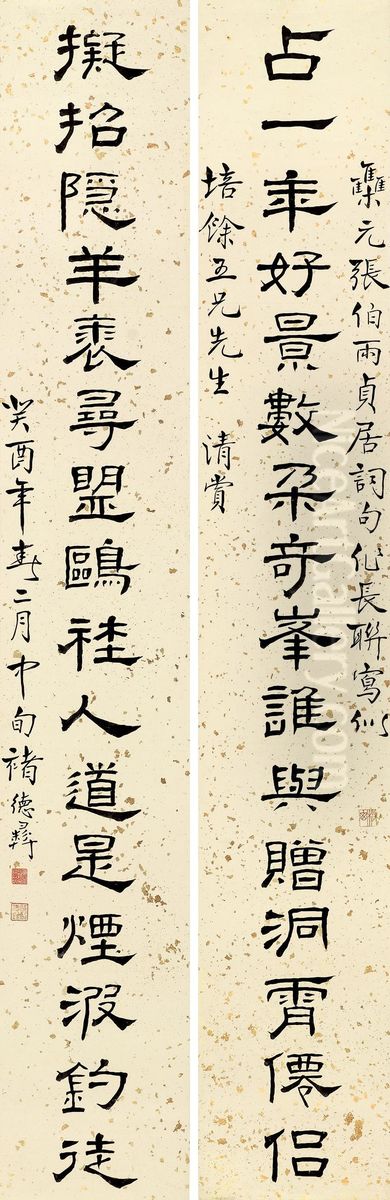 雧元張伯雨貞居詞句作長聯寫似
占一年好景數朵奇峯誰與贈洞霄僊侶
培餘五兄先生 清賞
擬招隱羊裘尋盟鷗社人道是煙波釣徒
癸酉年春二月中旬褚德彝
NiceArtGallery.com